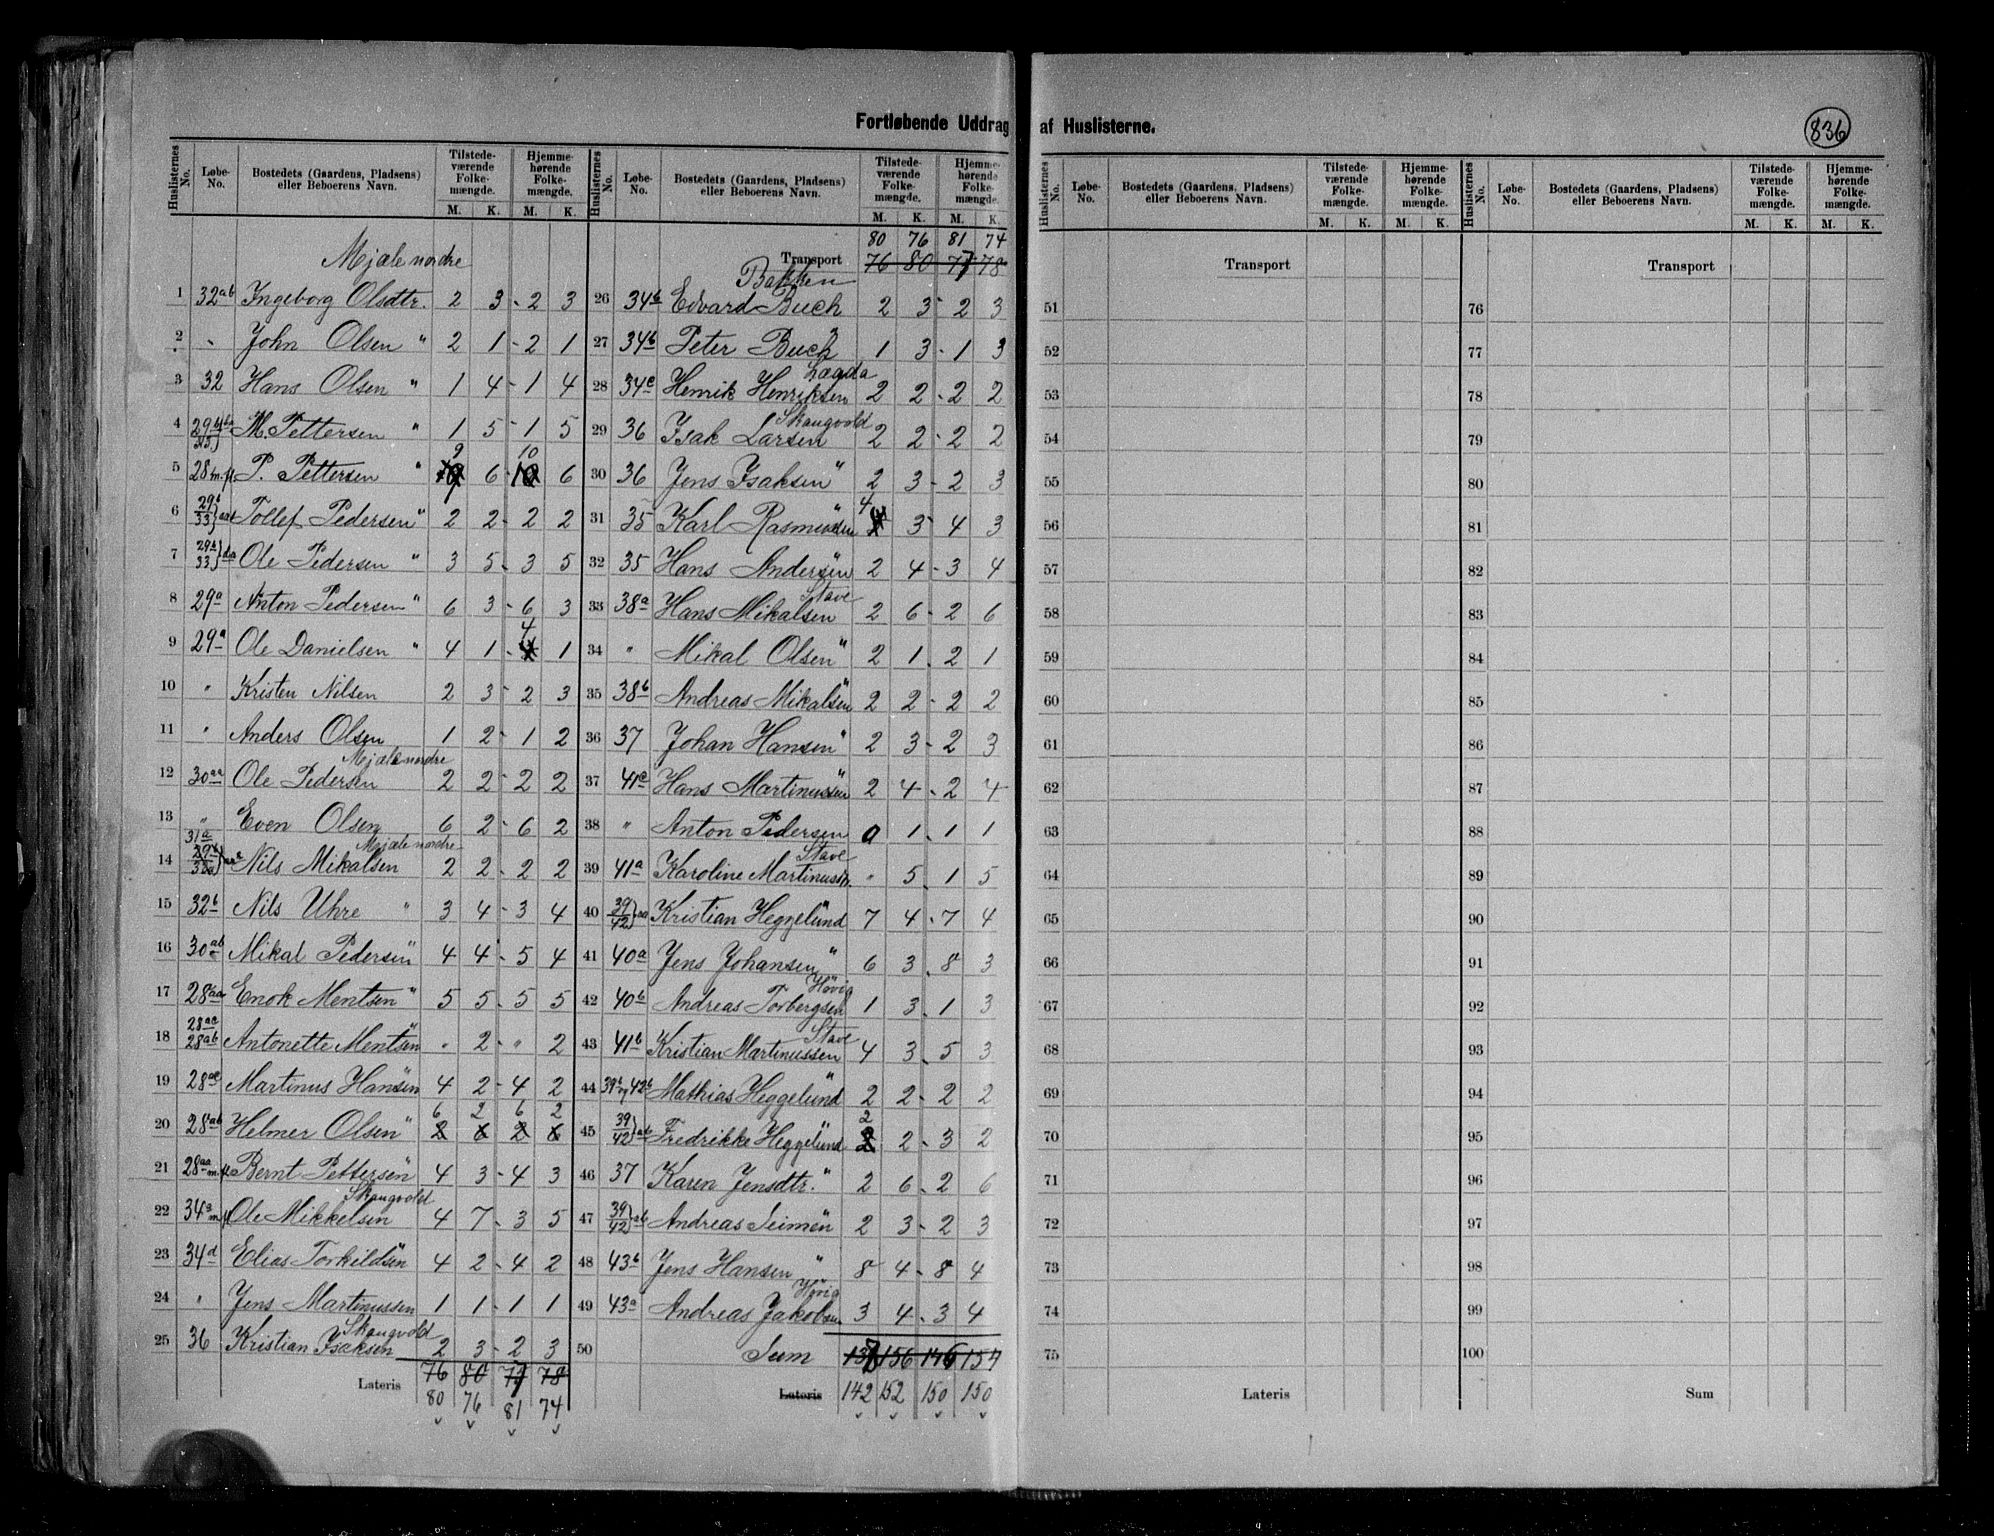 Fortløbende Uddrag af Huslisterne.
836
Huslisternes No. Løbe-No. Bostedets (Gaardens, Pladsens) eller Beboerens Navn. Tilstedeværende Folkemængde. M. K. Hjemmehørende Folkemængde. M. K.
Mjæle nordre
1 32ab Ingeborg Olsdtr. 2 3 - 2 3
2 - John Olsen " 2 1 - 2 1
3 32 Hans Olsen " 1 4 - 1 4
4 M. Pettersen " 1 5 - 1 5
5 28 m.fl. P. Pettersen " 9 6 10 6
6 29b/33} Tollef Pedersen " 2 2 - 2 2
7 29b/33} Ole Pedersen " 3 5 - 3 5
8 29a Anton Pedersen " 6 3 - 6 3
9 29a Ole Danielsen " 4 1 - 4 1
10 " Kristen Nilsen 2 3 - 2 3
11 " Anders Olsen 1 2 - 1 2
Mjæle nordre
12 30aa Ole Pedersen 2 2 - 2 2
13 " Even Olsen 6 2 - 6 2
Mjæle nordre
14 31a Nils Mikalsen 2 2 - 2 2
15 32b Nils Uhre " 3 4 - 3 4
16 30ab Mikal Pedersen " 4 4 - 5 4
17 28aa Enok Mentsen " 5 5 - 5 5
18 28ac 28ab Antonette Mentsen " 2 - " 2
19 28ac Martinus Hansen 4 2 - 4 2
6 2 6 2
20 28ab Helmer Olsen " 2 6 2 6
21 28aa m.fl. Bernt Pettersen " 4 3 - 4 3
Skaugvold
22 34a m.fl. Ole Mikkelsen 4 7 - 3 5
23 34d Elias Torkildsen " 4 2 - 4 2
24 " Jens Martinussen 1 1 - 1 1
Skaugvold
25 36 Kristian Isaksen 2 3 - 2 3
76 80 77 78
Lateris 80 76 81 74
Huslisternes No. Løbe-No. Bostedets (Gaardens, Pladsens) eller Beboerens Navn. Tilstedeværende Folkemængde. M. K. Hjemmehørende Folkemængde. M. K.
80 76 81 74
Transport 76 80 77 78
Bakken
26 34b Edvard Buch 2 3 - 2 3
27 34b Peter Buch " 1 3 - 1 3
Lægda
28 34c Henrik Henriksen 2 2 - 2 2
Skaugvold
29 36 Isak Larsen 2 2 - 2 2
30 36 Jens Isaksen " 2 3 - 2 3
31 35 Karl Rasmussen " 4 3 - 4 3
32 35 Hans Andersen " 2 4 - 3 4
Stave
33 38a Hans Mikalsen 2 6 - 2 6
34 " Mikal Olsen " 2 1 - 2 1
35 38b Andreas Mikalsen " 2 2 - 2 2
36 37 Johan Hansen " 2 3 - 2 3
37 41a Hans Martinussen " 2 4 - 2 4
38 " Anton Pedersen 0 1 - 1 1
Stave
39 41a Karoline Martinusdtr. " 5 - 1 5
40 39/42} aa Kristian Heggelund " 7 4 - 7 4
41 40a Jens Johansen " 6 3 - 8 3
Høvig
42 40b Andreas Torbergsen 1 3 - 1 3
Stave
43 41b Kristian Martinussen 4 3 - 5 3
44 39b, 42b Mathias Heggelund " 2 2 - 2 2
45 39/42} ab Fredrikke Heggelund " 2 2 - 3 2
46 37 Karen Jensdtr. " 2 6 - 2 6
47 39/42} ab Andreas Seimen " 2 3 - 2 3
48 43b Jens Hansen " 8 4 - 8 4
Høvig
49 43a Andreas Jakobsen 3 4 - 3 4
50 Sum 137 156 146 154
Lateris 142 152 150 150
Huslisternes No. Løbe-No. Bostedets (Gaardens, Pladsens) eller Beboerens Navn. Tilstedeværende Folkemængde. M. K. Hjemmehørende Folkemængde. M. K.
Transport
51
52
53
54
55
56
57
58
59
60
61
62
63
64
65
66
67
68
69
70
71
72
73
74
75
Lateris
Huslisternes No. Løbe-No. Bostedets (Gaardens, Pladsens) eller Beboerens Navn. Tilstedeværende Folkemængde. M. K. Hjemmehørende Folkemængde. M. K.
Transport
76
77
78
79
80
81
82
83
84
85
86
87
88
89
90
91
92
93
94
95
96
97
98
99
100
Sum